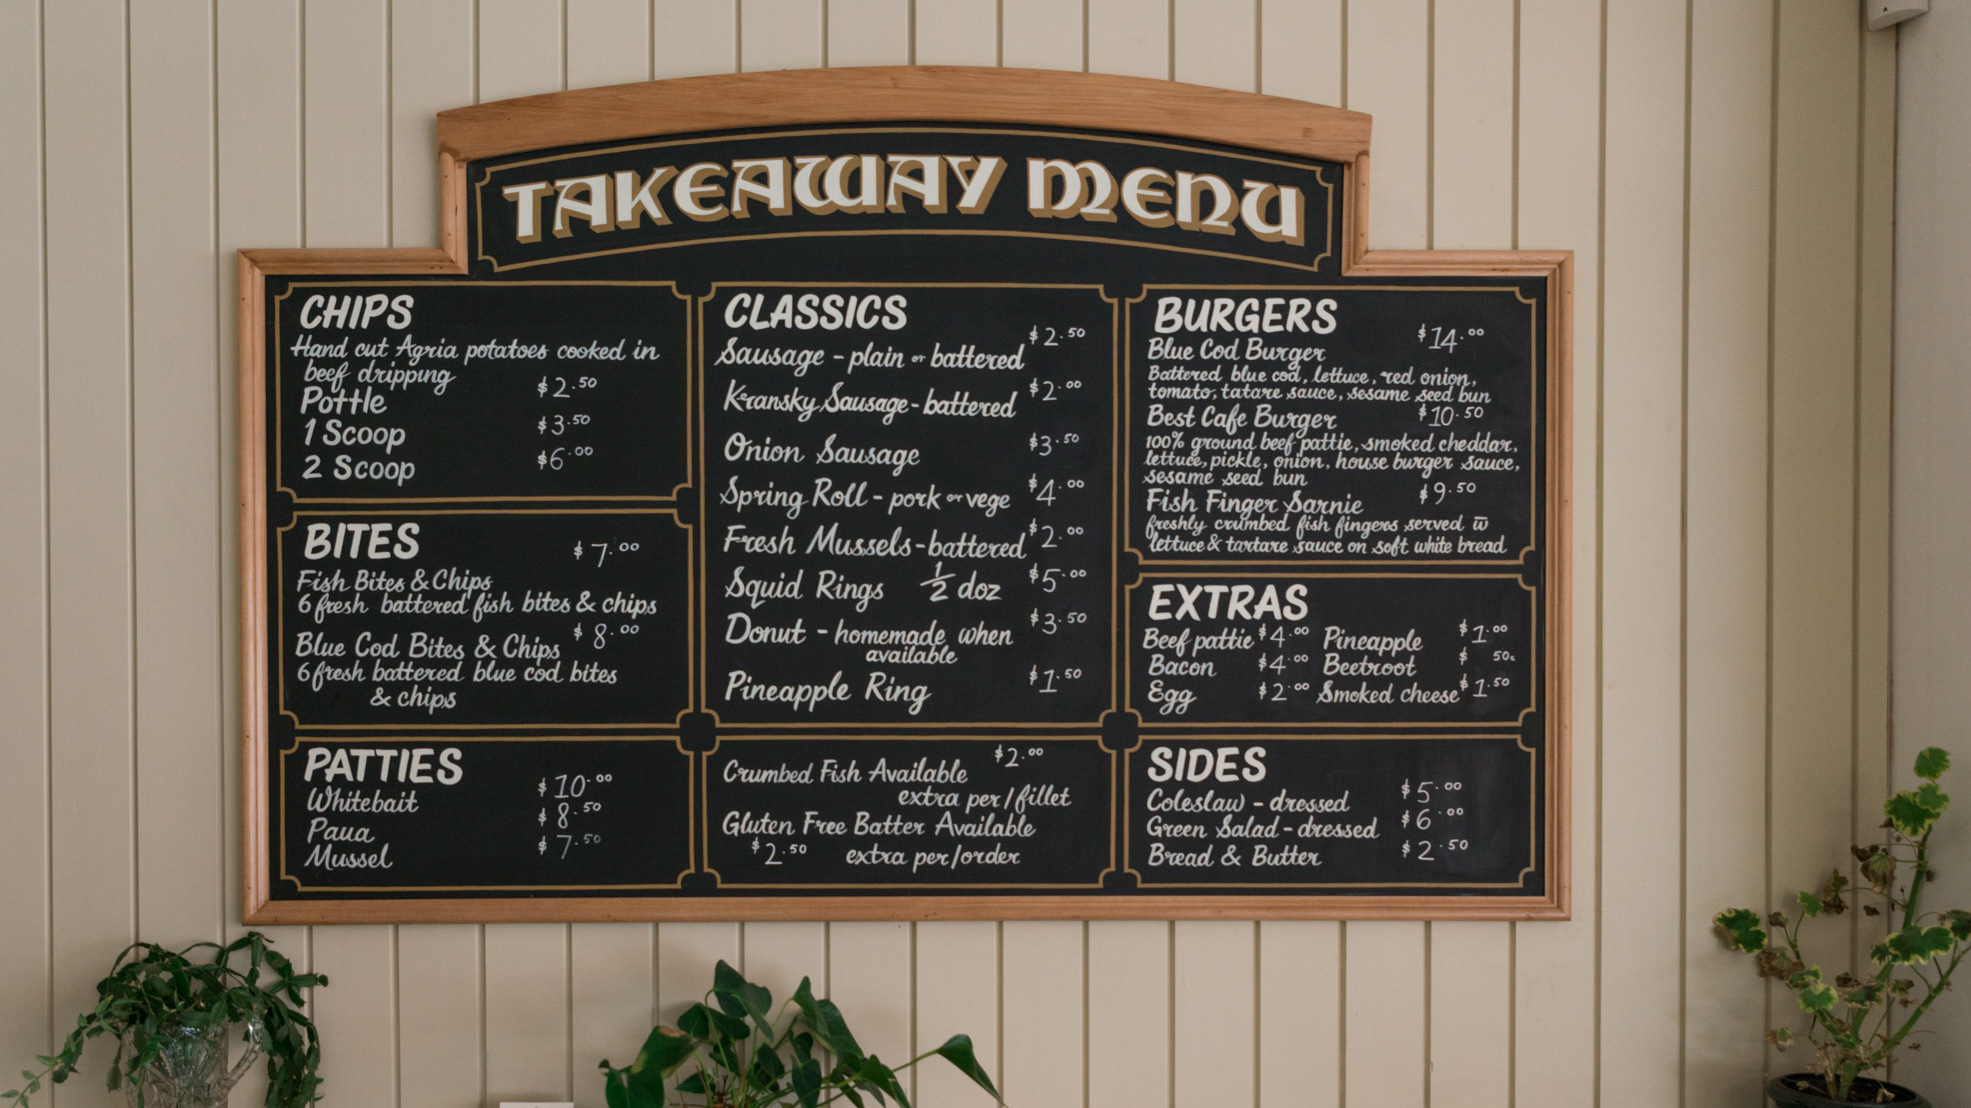 TAKEAWAY MENU
CHIPS
Hand cut Agria potatoes cooked in
beef dripping
Pottle $2.50
1 Scoop $3.50
2 Scoop $6.00
BITES
Fish Bites & Chips $7.00
6 fresh battered fish bites & chips
Blue Cod Bites & Chips $8.00
6 fresh battered blue cod bites
& chips
PATTIES
Whitebait $10.00
Paua $8.50
Mussel $7.50
CLASSICS
Sausage - plain or battered $2.50
Kransky Sausage - battered $2.00
Onion Sausage $3.50
Spring Roll - pork or vege $4.00
Fresh Mussels - battered $2.00
Squid Rings ½ doz $5.00
Donut - homemade when $3.50
available
Pineapple Ring $1.50
Crumbed Fish Available $2.00
extra per/fillet
Gluten Free Batter Available
$2.50 extra per/order
BURGERS
Blue Cod Burger $14.00
Battered blue cod, lettuce, red onion,
tomato, tatare sauce, sesame seed bun
Best Cafe Burger $10.50
100% ground beef pattie, smoked cheddar,
lettuce, pickle, onion, house burger sauce,
sesame seed bun
Fish Finger Sarnie $9.50
freshly crumbed fish fingers served w̅
lettuce & tartare sauce on soft white bread
EXTRAS
Beef pattie $4.00 Pineapple $1.00
Bacon $4.00 Beetroot $ 50c
Egg $2.00 Smoked cheese $1.50
SIDES
Coleslaw - dressed $5.00
Green Salad - dressed $6.00
Bread & Butter $2.50